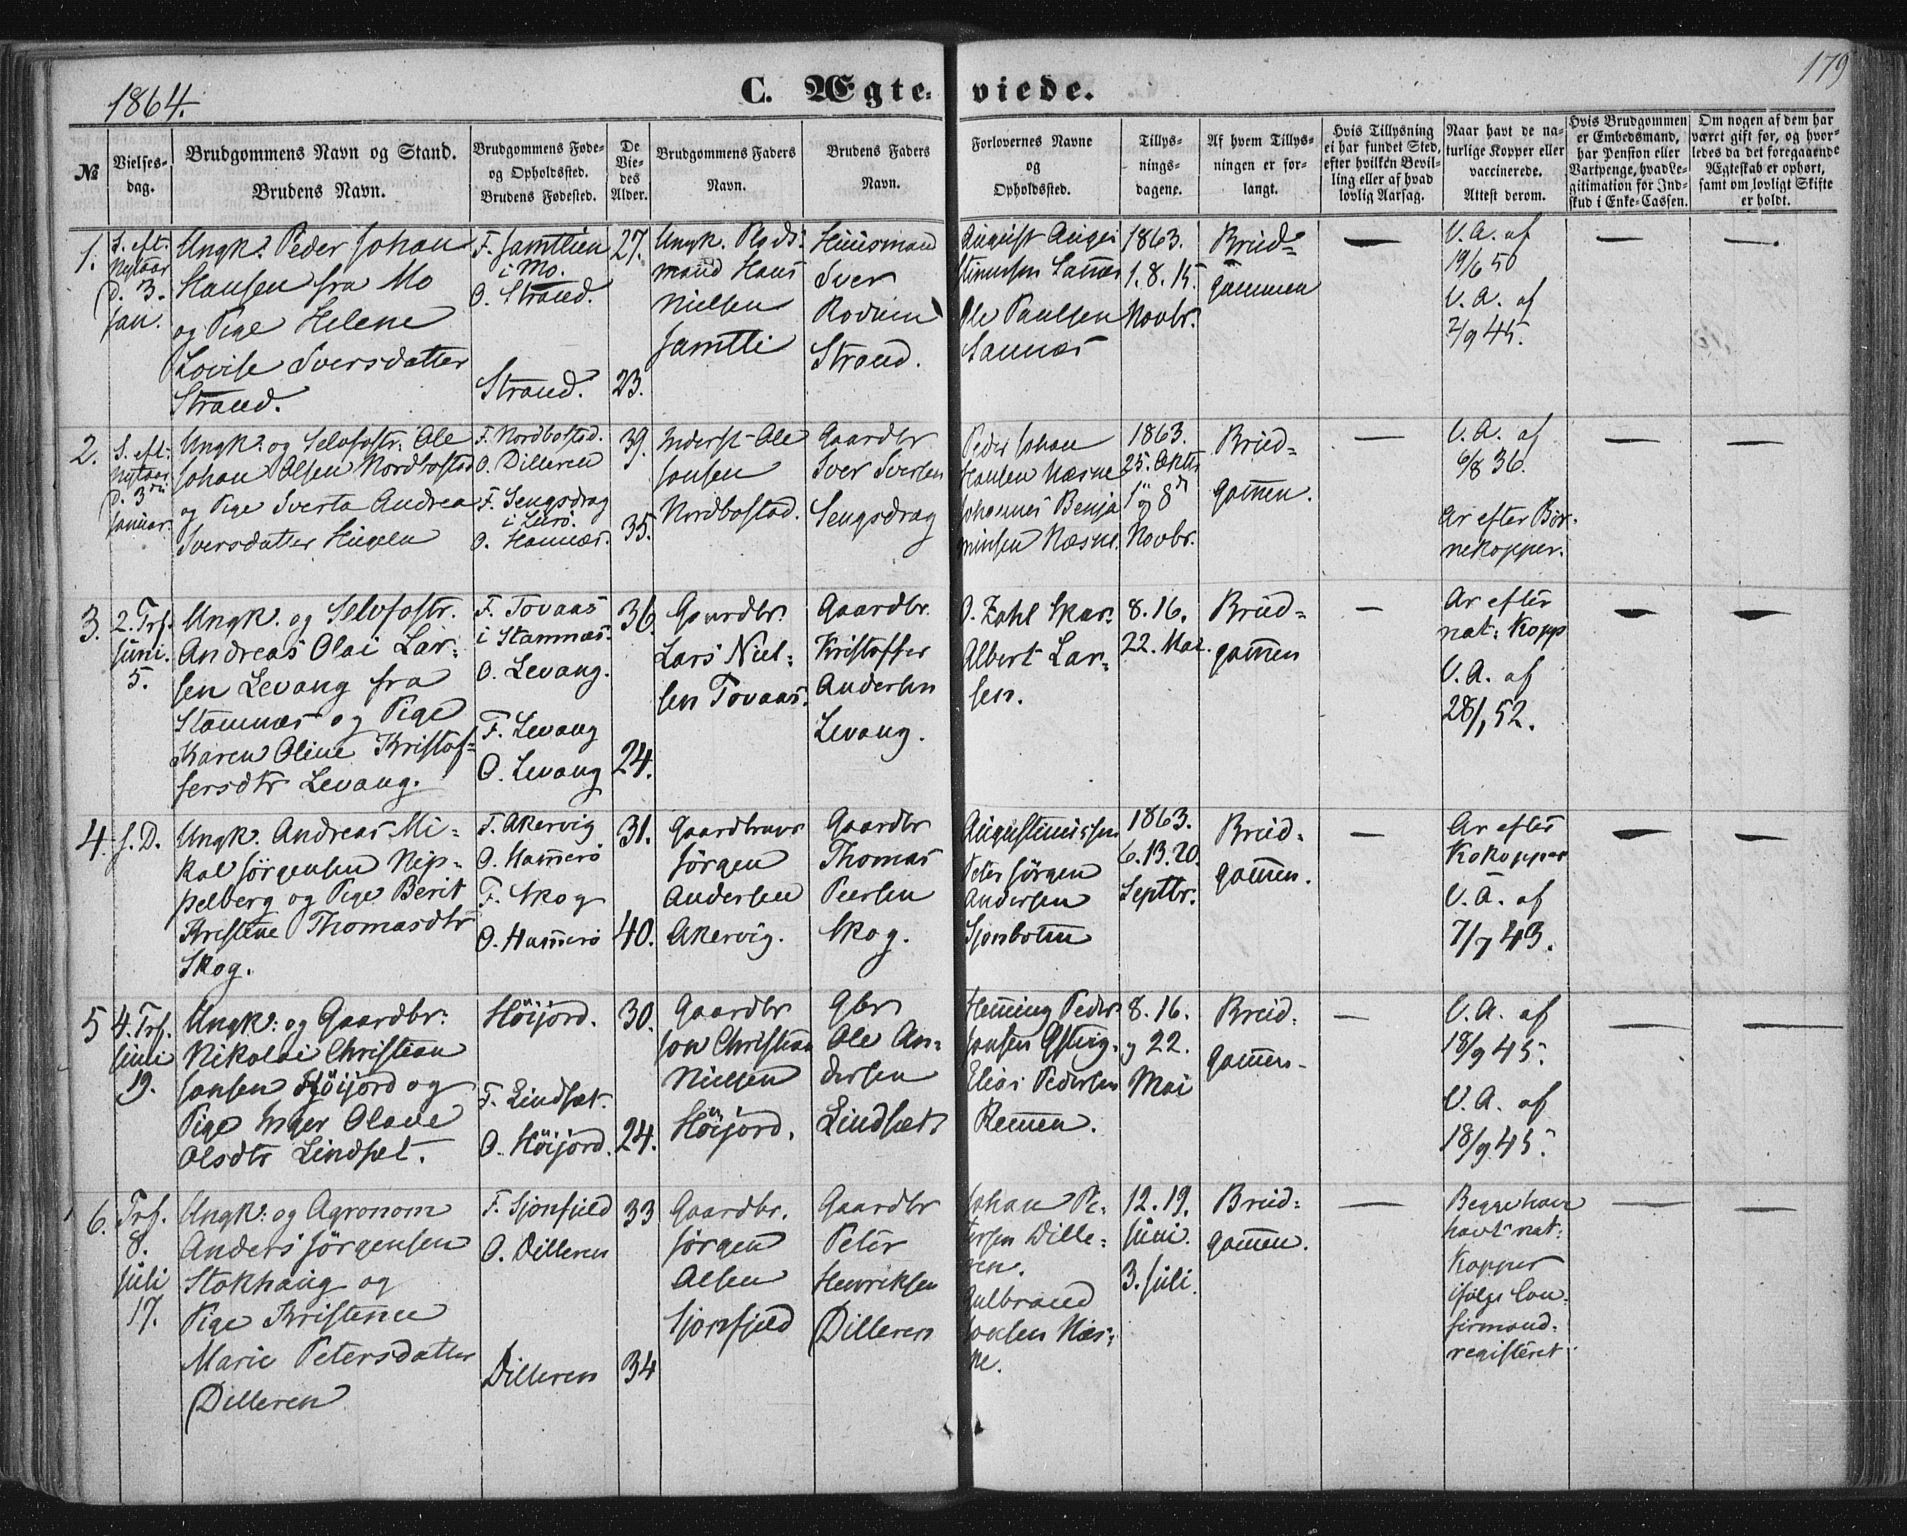 1864.
C. Ægte-viede.
179
№
Vielses-
dag.
Brudgommens Navn og Stand.
Brudens Navn.
Brudgommens Føde-
og Opholdssted.
Brudens Fødested.
De
Vie-
des
Alder.
Brudgommens Faders
Navn.
Brudens Faders
Navn.
Forlovernes Navne
og
Opholdssted.
Tillys-
nings-
dagene.
Af hvem Tillys-
ningen er for-
langt.
Hvis Tillysning
ei har fundet Sted,
efter hvilken Bevil-
ling eller af hvad
lovlig Aarsag.
Naar havt de na-
turlige Kopper eller
vaccinerede.
Attest derom.
Hvis Brudgommen
er Embedsmand,
har Pension eller
Vartpenge, hvad Le-
gitimation for Ind-
skud i Enke-Cassen.
Om nogen af dem har
været gift før, og hvor-
ledes da det foregaaende
Ægteskab er ophørt,
samt om lovligt Skifte
er holdt.
1.
S. eft.
Nytaar
d. 3.
Jan.
Ungk. Peder Johan
Hansen fra Mo
og Pige Helene
Lovise Iversdatter
Strand.
F. Jamtlien
i Mo.
O. Strand.
Strand.
27.
23.
Ungk. Plads-
mand Hans
Nielsen
Jamtli
Huusmand
Iver
Strand.
Ole Paulsen
Sannæs
1863.
1. 8. 15.
Novbr.
Brud-
gommen
—
V. A. af
19/6 50
V. A. af
2/9 45.
—
—
2.
S. eft.
Nytaar
d. 3die
Januar.
Ungk. og Selvfostr. Ole
Johan Olsen Nordbostad
og Pige Iverta Andrea
Iversdatter Hugela
F. Nordbostad.
O. Dilleren
F. Sengsdrag
i Lurö.
O. Hannæs.
39.
35.
Inderst Ole
Jonsen
Nordbostad.
Gaardbr
Iver Iversen
Sengsdrag
Peder Johan
Hansen Næsne
Johannes Benja
minsen Næsne.
1863.
25. Oktr
1 og 8de
Novbr.
Brud-
gommen.
—
V. A. af
6/8 36.
Ar efter Bør-
nekopper.
—
—
3.
2. Trf.
Juni.
5.
Ungk. og Selvfostr.
Andreas Olai Lar-
sen Levang fra
Stamnæs og Pige
Karen Oline Kristof-
fersdtr Levang.
F. Tovaas
i Stamnæs.
O. Levang.
F. Levang
O. Levang
36.
24.
Gaardbr.
Lars Niel-
sen Tovaas.
Gaardbr.
Kristoffer
Andersen
Levang.
O. Zahl Skar.
Albert Lar-
sen.
8. 16.
22. Mai.
Brud-
gommen
—
Ar efter
nat. Kopp
V. A. af
28/1 52.
—
—
4.
s. D.
Ungk. Andreas Mi-
kal Jörgensen Nip-
pelberg og Pige Berit
Kristine Thomasdtr
Skog.
F. Akervig
O. Hammerö
F. Skog
O. Hammerö
31.
40.
Gaardbruer
Jörgen
Andersen
Akervig.
Gaardbr
Thomas
Peersen
Skog.
Augustinussen
Peter Jörgen
Andersen
Sjonbotten
1863.
6. 13. 20.
Septbr.
Brud-
gommen.
—
Ar efter
Kokopper
V. A. af
7/7 43.
—
—
5
4. Trf.
Juni
19.
Ungk. og Gaardbr.
Nikolai Christian
Jonsen Höijord og
Pige Inger Olave
Olsdtr Lindset.
Höijord.
F. Lindset.
O. Höijord.
30.
24.
Gaardbr
Jon Christian
Nielsen
Höijord.
Gbr
Ole An-
dersen
Lindset
Henning Peder
Jonsen
Elias Pedersen
Remmen.
8. 16.
og 22.
Mai
Brud-
gommen
—
V. A. af
18/9 45.
V. A. af
18/9 45.
—
—
6.
Trf.
8.
Juli
17.
Ungk. og Agronom
Anders Jörgensen
Stokhaug og
Pige Kristence
Marie Petersdatter
Dilleren
F. Sjonfjeld
O. Dilleren
Dilleren
33
34
Gaardbr.
Jörgen
Olsen
Sjonfjeld
Gaardbr
Peter
Henriksen
Dilleren
Johan Pe-
tersen Dille-
ren.
Gulbrand
Joesen Næs-
ne.
12. 19.
Juni.
3. Juli.
Brud-
gommen.
—
Begge have
havt nat.
Kopper
ifølge Con-
firmand-
registeret
—
—